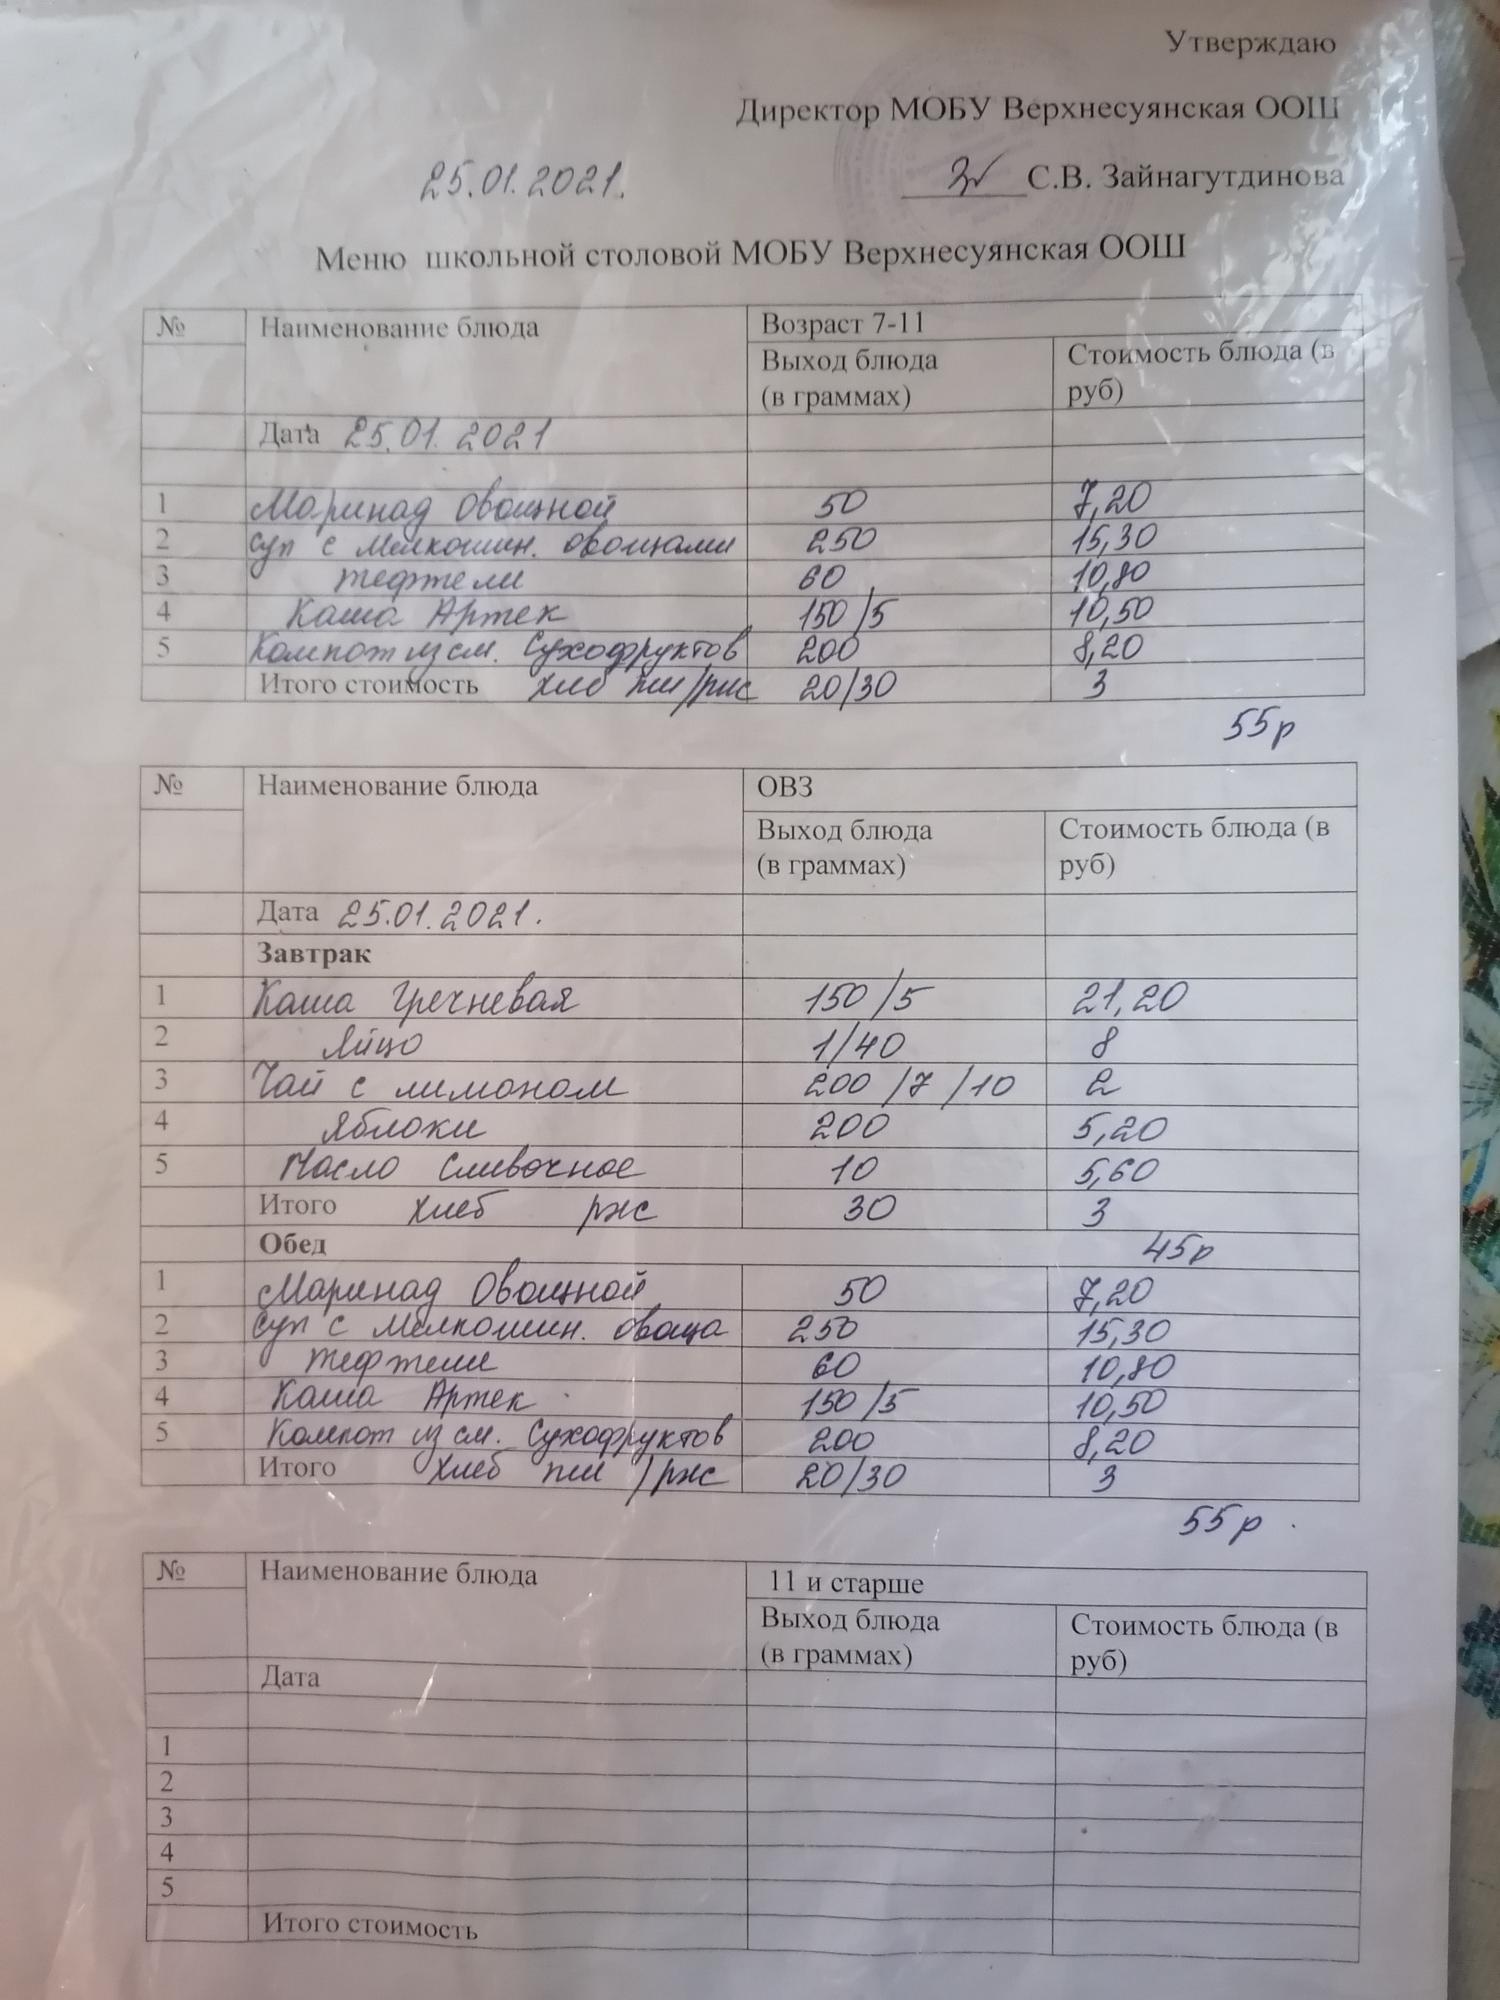 Утверждаю
Директор МОБУ Верхнесуянская ООШ
25.01.2021. С.В. Зайнагутдинова
Меню школьной столовой МОБУ Верхнесуянская ООШ
№ Наименование блюда Возраст 7-11
Выход блюда (в граммах) Стоимость блюда (в руб)
Дата 25.01.2021
1 Маринад Овощной 50 7,20
2 Суп с мелкошин. овощами 250 15,30
3 тефтели 60 10,80
4 Каша Артек 150/5 10,50
5 Компот из см. Сухофруктов 200 8,20
Итого стоимость хлеб пш/ржс 20/30 3
55р
№ Наименование блюда ОВЗ
Выход блюда (в граммах) Стоимость блюда (в руб)
Дата 25.01.2021.
Завтрак
1 Каша Гречневая 150/5 21,20
2 Яйцо 1/40 8
3 Чай с лимоном 200/7/10 2
4 Яблоки 200 5,20
5 Масло Сливочное 10 5,60
Итого хлеб ржс 30 3
Обед 45р
1 Маринад Овощной 50 7,20
2 Суп с мелкошин. овоща 250 15,30
3 тефтели 60 10,80
4 Каша Артек 150/5 10,50
5 Компот из см. Сухофруктов 200 8,20
Итого хлеб пш/ржс 20/30 3
55р.
№ Наименование блюда 11 и старше
Выход блюда (в граммах) Стоимость блюда (в руб)
Дата
1
2
3
4
5
Итого стоимость